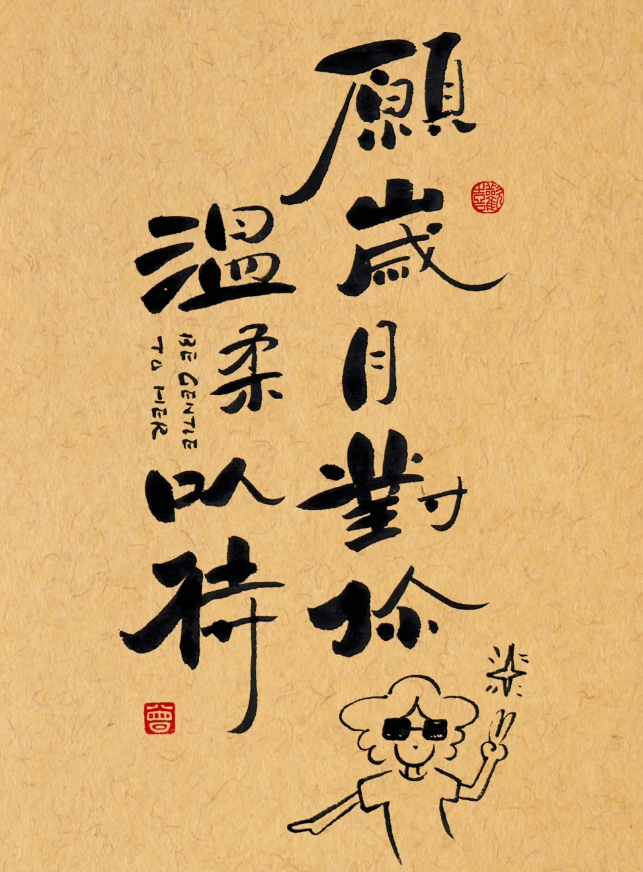 願歲月對你
溫柔以待
BE GENTLE
TO HER
曾